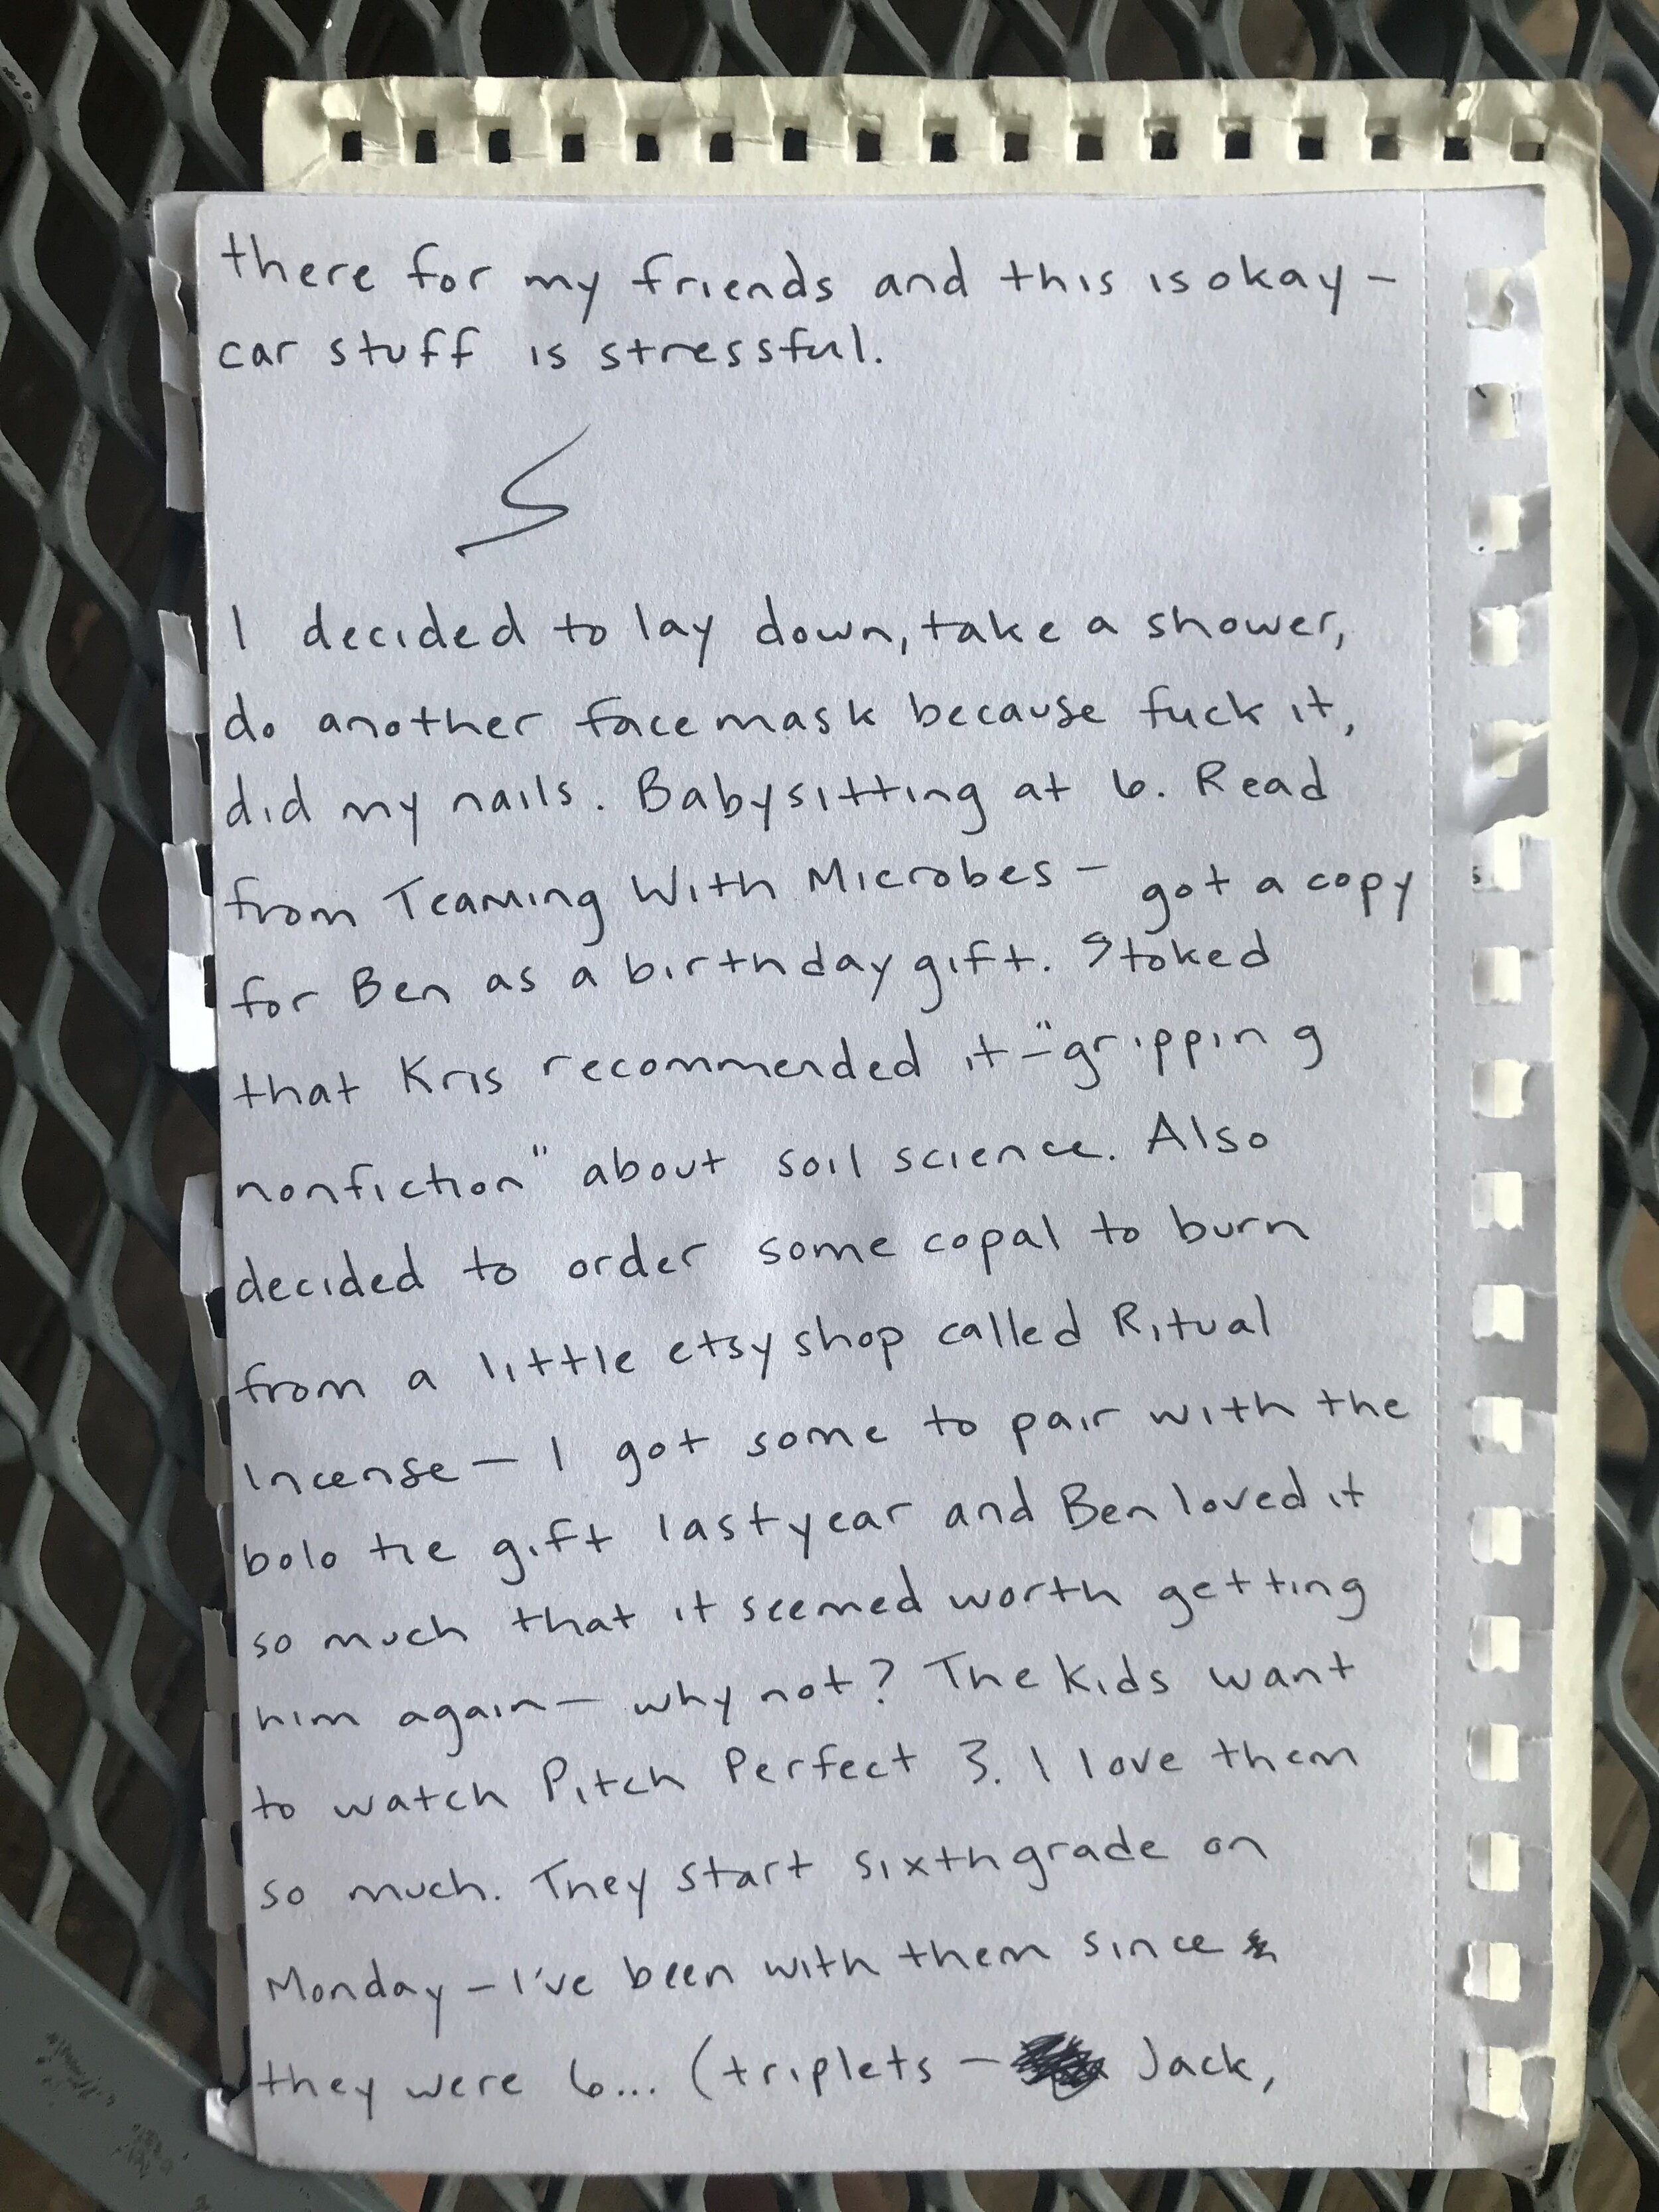 there for my friends and this is okay –
car stuff is stressful.
I decided to lay down, take a shower,
do another facemask because fuck it,
did my nails. Babysitting at 6. Read
from Teaming With Microbes – got a copy
for Ben as a birthday gift. Stoked
that Kris recommended it – "gripping
nonfiction" about soil science. Also
decided to order some copal to burn
from a little etsy shop called Ritual
Incense – I got some to pair with the
bolo tie gift last year and Ben loved it
so much that it seemed worth getting
him again – why not? The kids want
to watch Pitch Perfect 3. I love them
so much. They start sixth grade on
Monday – I've been with them since
they were 6... (triplets – Jack,